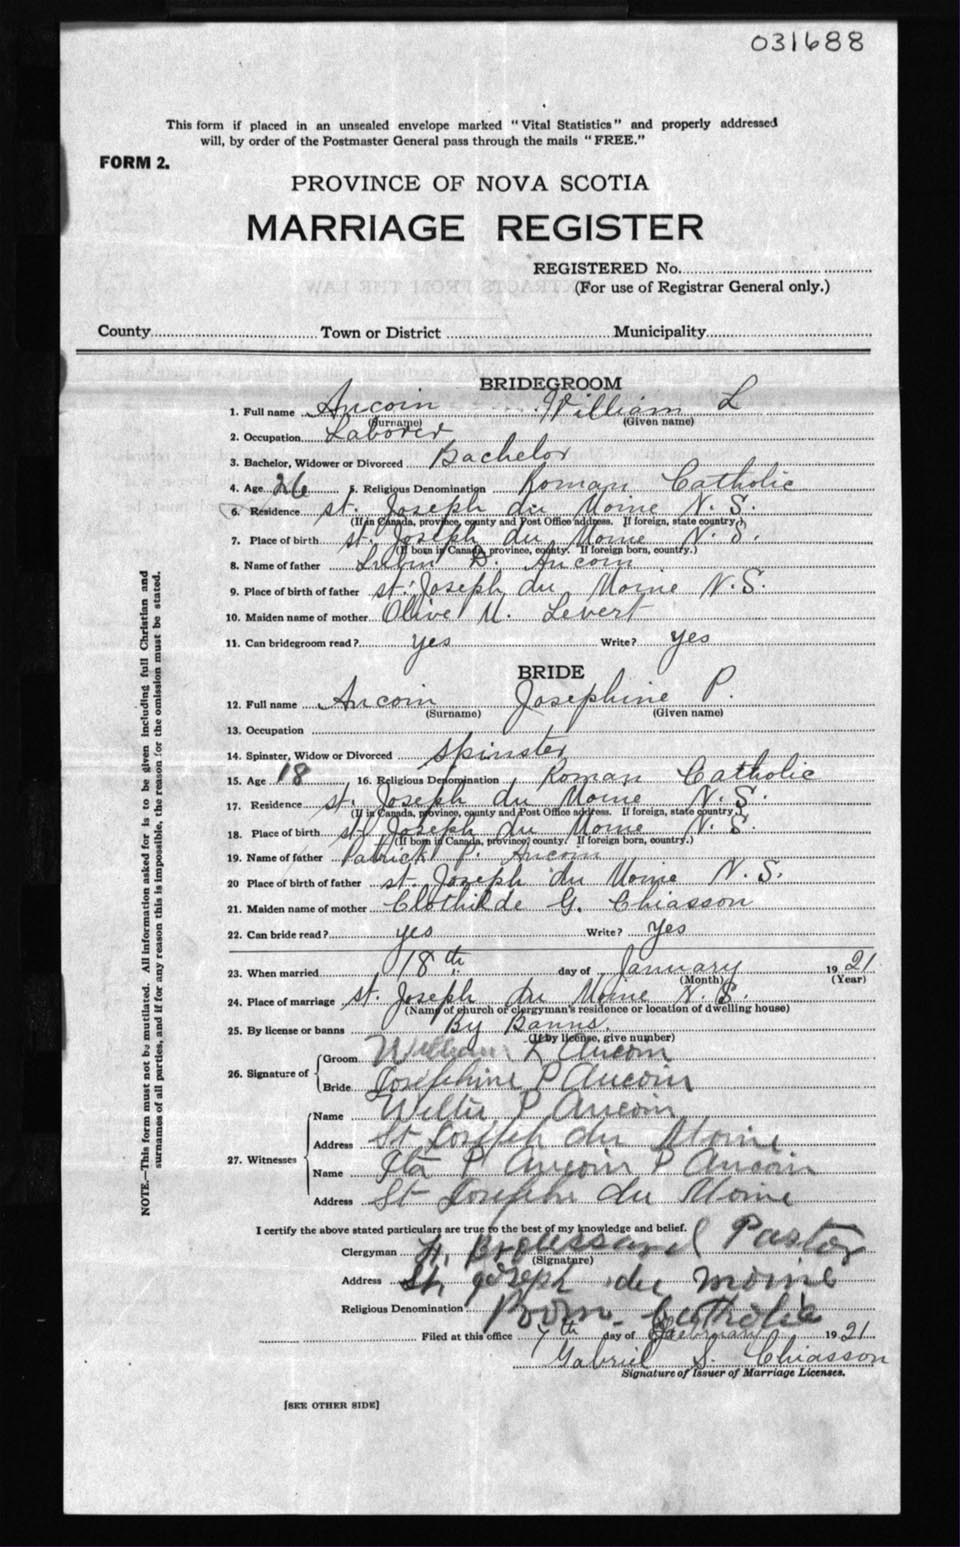 031688
This form if placed in an unsealed envelope marked "Vital Statistics" and properly addressed
will, by order of the Postmaster General pass through the mails "FREE."
FORM 2.
PROVINCE OF NOVA SCOTIA
MARRIAGE REGISTER
REGISTERED No.
(For use of Registrar General only.)
County Town or District Municipality
BRIDEGROOM
1. Full name Aucoin William L
(Surname) (Given name)
2. Occupation Laborer
3. Bachelor, Widower or Divorced Bachelor
4. Age 26 5. Religious Denomination Roman Catholic
6. Residence St. Joseph du Moine N. S.
(If in Canada, province, county and Post Office address. If foreign, state country.)
7. Place of birth St. Joseph du Moine N. S.
(If born in Canada, province, county. If foreign born, country.)
8. Name of father Lubin D. Aucoin
9. Place of birth of father St. Joseph du Moine N. S.
10. Maiden name of mother Olive M. Levert
11. Can bridegroom read? yes Write? yes
BRIDE
12. Full name Aucoin Josephine P.
(Surname) (Given name)
13. Occupation
14. Spinster, Widow or Divorced Spinster
15. Age 18 16. Religious Denomination Roman Catholic
17. Residence St. Joseph du Moine N. S.
(If in Canada, province, county and Post Office address. If foreign, state country.)
18. Place of birth St. Joseph du Moine N. S.
(If born in Canada, province, county. If foreign born, country.)
19. Name of father Patrick P. Aucoin
20 Place of birth of father St. Joseph du Moine N. S.
21. Maiden name of mother Clothilde G. Chiasson
22. Can bride read? yes Write? yes
23. When married 18th day of January 1921
(Month) (Year)
24. Place of marriage St. Joseph du Moine N. S.
(Name of church or clergyman's residence or location of dwelling house)
25. By license or banns By Banns.
(If by license, give number)
26. Signature of
Groom William L Aucoin
Bride Josephine P Aucoin
27. Witnesses
Name P Aucoin
Address St Joseph du Moine
Name P Aucoin P Aucoin
Address St Joseph du Moine
I certify the above stated particulars are true to the best of my knowledge and belief.
Clergyman H. Broussard Pastor
(Signature)
Address St. Joseph du Moine
Religious Denomination Rom. Catholic
Filed at this office 7th day of 1921
Gabriel S. Chiasson
Signature of Issuer of Marriage Licenses.
[SEE OTHER SIDE]
NOTE.—This form must not be mutilated. All information asked for is to be given including full Christian and
surnames of all parties, and if for any reason this is impossible, the reason for the omission must be stated.